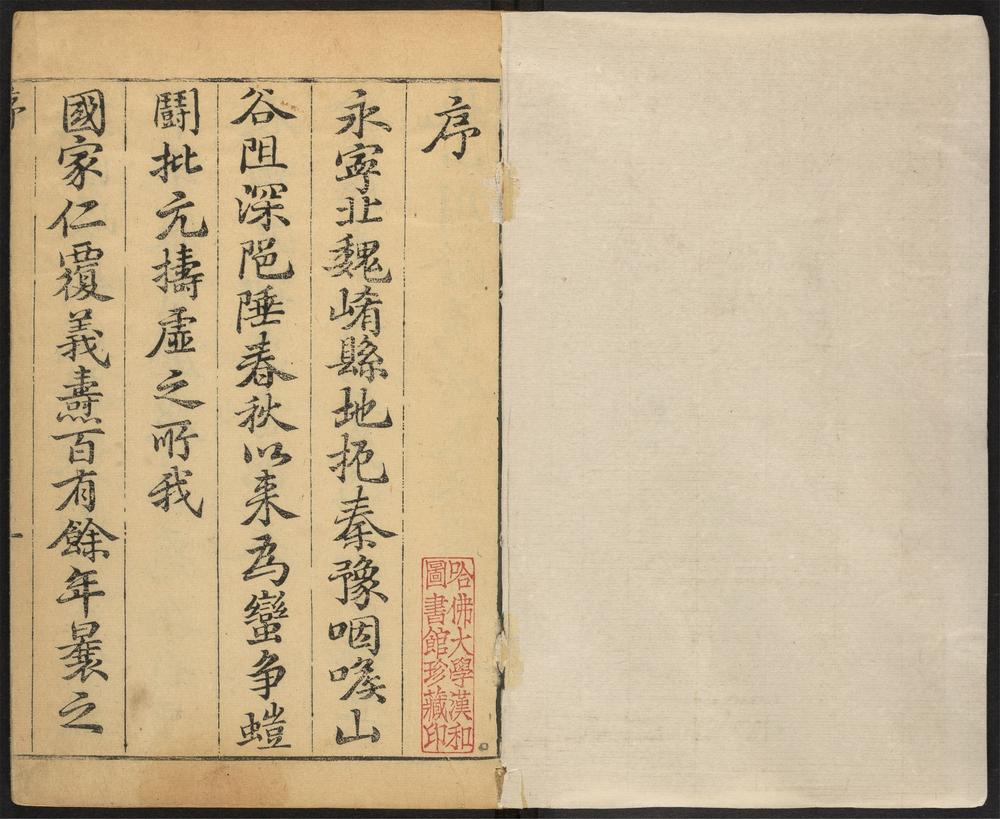 序
永寧北魏崤縣地扼秦豫咽喉山
谷阻深阨陲春秋以來為蠻爭螘
鬪批亢擣虛之所我
國家仁覆義燾百有餘年曩之
序
一
哈佛大學漢和
圖書館珍藏印